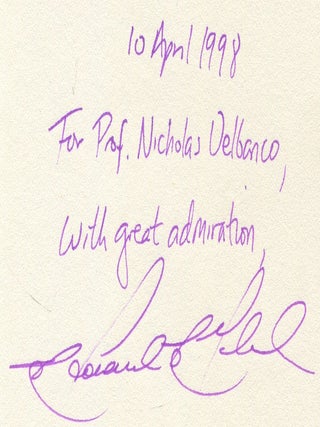 10 April 1998
For Prof. Nicholas Velbanco,
With great admiration,